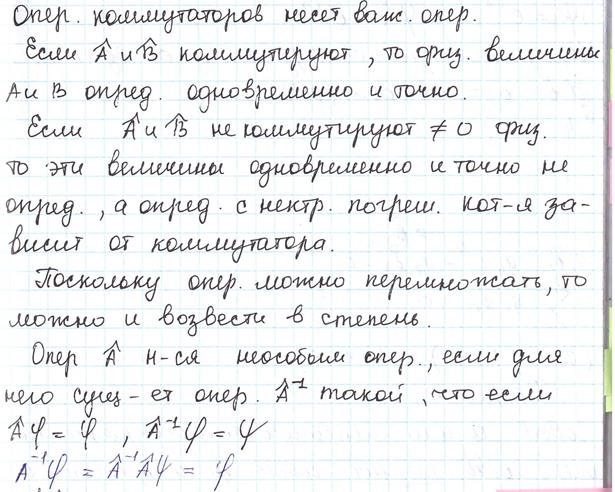 Опер. коммутаторов несет важ. опер.
Если Â и B̂ коммутируют, то физ. величины
A и B опред. одновременно и точно.
Если Â и B̂ не коммутируют ≠ 0 физ.
то эти величины одновременно и точно не
опред., а опред. с нектр. погреш. кот-я за-
висит от коммутатора.
Поскольку опер. можно перемножать, то
можно и возвести в степень.
Опер Â н-ся неособым опер., если для
него сущ-ет опер. Â⁻¹ такой, что если
Âψ = φ, Â⁻¹φ = ψ
A⁻¹φ = Â⁻¹Âψ = ψ